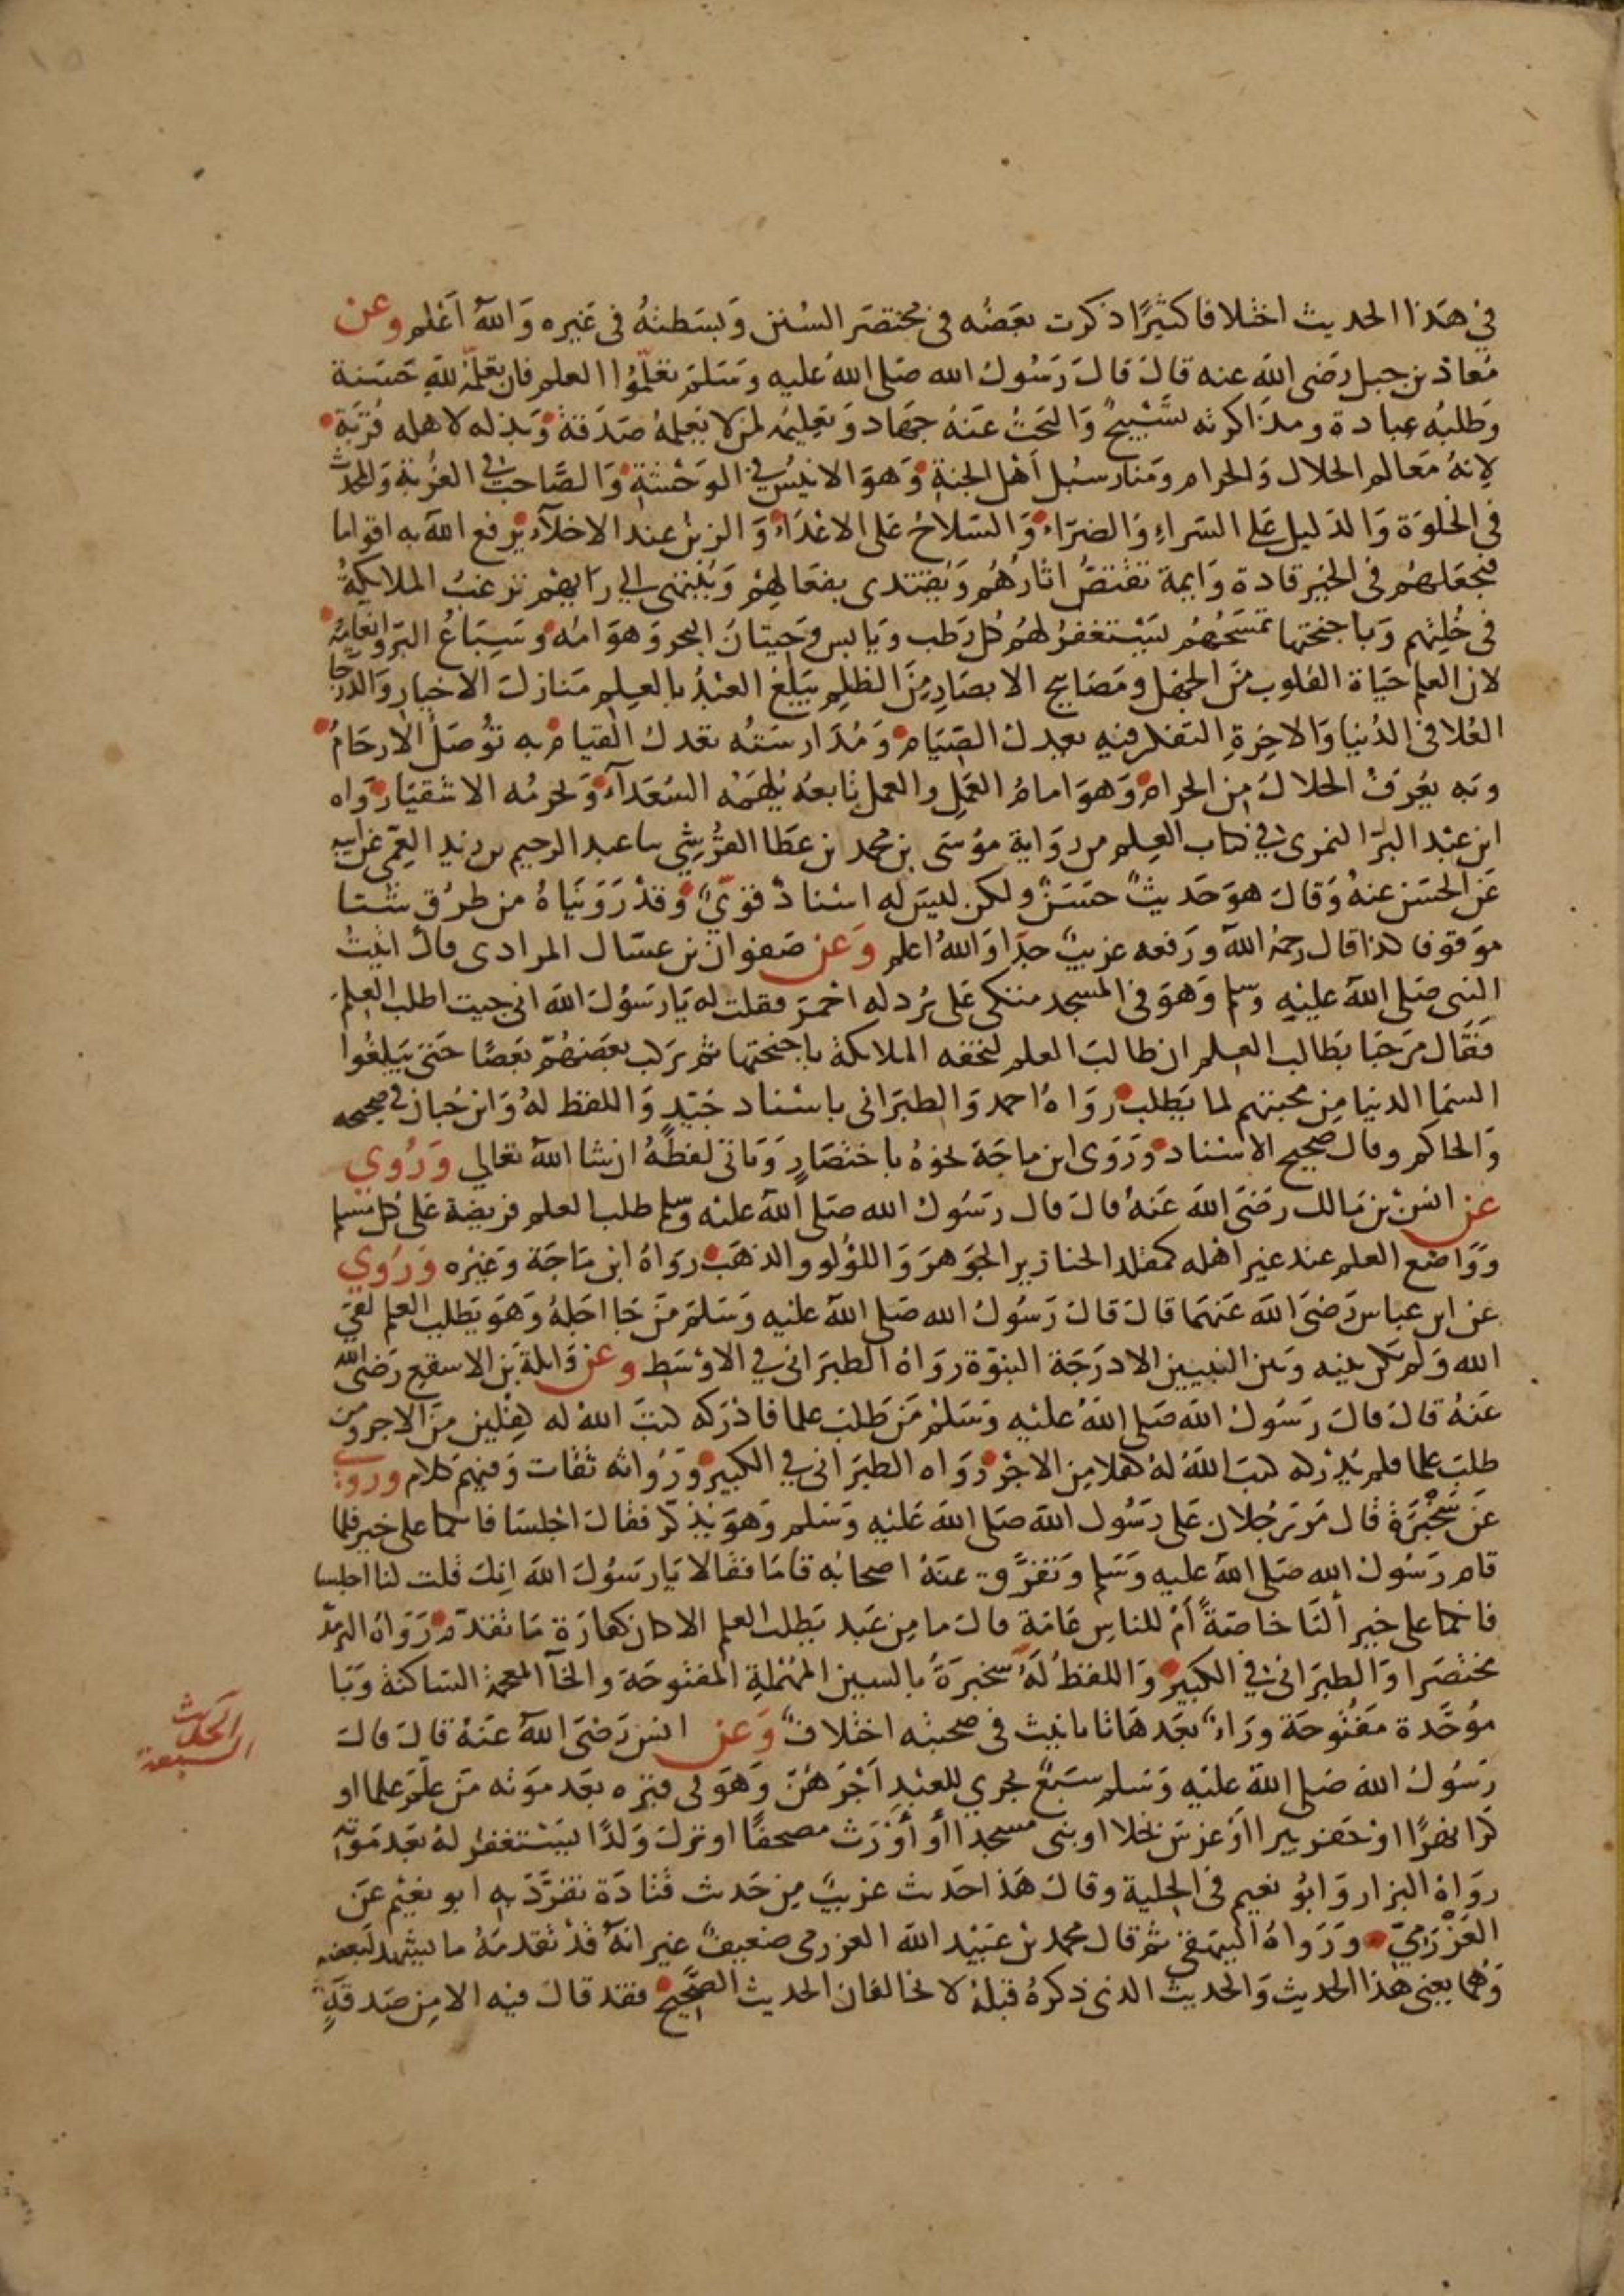 في هذا الحديث اختلافا كثيرًا ذكرت بعضه في مختصر السنن وبسطته في غيره والله أعلم وعن
معاذ بن جبل رضى الله عنه قال قال رسول الله صلى الله عليه وسلم تعلموا العلم فان تعلمه لله حسنة
وطلبه عبادة ومذاكرته تسبيح والبحث عنه جهاد وتعليمه لمن لا يعلمه صدقة وبذله لاهله قربة
لانه معالم الحلال والحرام ومنار سبل أهل الجنة وهو الانيس في الوحشة والصاحب في الغربة والمحدث
في الخلوة والدليل على السراء والضراء والسلاح على الاعداء والزين عند الاخلاء يرفع الله به اقواما
فيجعلهم في الخير قادة وايمة تقتص اثارهم ويقتدى بفعالهم وينتهى الى رايهم ترغب الملايكة
في خلتهم وباجنحتها تمسحهم يستغفر لهم كل رطب ويابس وحيتان البحر وهوامه وسباع البر وانعامه
لان العلم حياة القلوب من الجهل ومصابيح الابصار من الظلم يبلغ العبد بالعلم منازل الاخيار والدرجا
العلا في الدنيا والاخرة التفكر فيه يعدل الصيام ومدارسته تعدل القيام به توصل الارحام
وبه يعرف الحلال من الحرام وهو امام العمل والعمل تابعه يلهمه السعداء ويحرمه الاشقيا رواه
ابن عبد البر النمري في كتاب العلم من رواية موسى بن محمد بن عطا القرشي سا عبد الرحيم بن زيد العمي عن ابيه
عن الحسن عنه وقال هو حديث حسن ولكن ليس له اسناد قوي وقد رويناه من طرق شتا
موقوفا كذا قال رحمه الله ورفعه غريب جدا والله اعلم وعن صفوان بن عسال المرادى قال اتيت
النبي صلى الله عليه وسلم وهو في المسجد متكى على برد له احمر فقلت له يا رسول الله انى جيت اطلب العلم
فقال مرحبا بطالب العلم ان طالب العلم لتحفه الملايكة باجنحتها ثم يركب بعضهم بعضا حتى يبلغوا
السما الدنيا من محبتهم لما يطلب رواه احمد والطبراني باسناد جيد واللفظ له وابن حبان في صحيحه
والحاكم وقال صحيح الاسناد وروى ابن ماجة نحوه باختصار وياتى لفظه ان شا الله تعالى وروي
عن انس بن مالك رضى الله عنه قال قال رسول الله صلى الله عليه وسلم طلب العلم فريضة على كل مسلم
وواضع العلم عند غير اهله كمقلد الخنازير الجوهر واللولو والذهب رواه ابن ماجة وغيره وروي
عن ابن عباس رضى الله عنهما قال قال رسول الله صلى الله عليه وسلم من جا اجله وهو يطلب العلم لقي
الله ولم يكن بينه وبين النبيين الا درجة النبوة رواه الطبراني في الاوسط وعن واثلة بن الاسقع رضى الله
عنه قال قال رسول الله صلى الله عليه وسلم من طلب علما فادركه كتب الله له كفلين من الاجر ومن
طلب علما فلم يدركه كتب الله له كفلا من الاجر رواه الطبراني في الكبير ورواته ثقات وفيهم كلام وروي
عن سخبرة قال مر رجلان على رسول الله صلى الله عليه وسلم وهو يذكر فقال اجلسا فانكما على خير فلما
قام رسول الله صلى الله عليه وسلم وتفرق عنه اصحابه قاما فقالا يا رسول الله انك قلت لنا اجلسا
فانكما على خير ألنا خاصة أم للناس عامة قال ما من عبد يطلب العلم الا كان كفارة ما تقدم رواه الترمذ
مختصرا والطبراني في الكبير واللفظ له سخبرة بالسين المهملة المفتوحة والخآ المعجمة الساكنة وبا
موحدة مفتوحة وراء بعدها تا تانيث في صحبته اختلاف وعن انس رضى الله عنه قال قال
رسول الله صلى الله عليه وسلم سبع يجري للعبد اجرهن وهو في قبره بعد موته من علم علما او
كرا نهرا او حفر بيرا او غرس نخلا او بنى مسجدا أو أورث مصحفا او ترك ولدا يستغفر له بعد موته
رواه البزار وابو نعيم في الحلية وقال هذا حديث غريب من حديث قتادة تفرد به ابو نعيم عن
العزرمي ورواه البيهقي ثم قال محمد بن عبيد الله العزرمى ضعيف غير انه قد تقدمه ما يشهد لبعضه
وهما يعني هذا الحديث والحديث الذى ذكره قبله لا يخالفان الحديث الصحيح فقد قال فيه الا من صدقة
الحديث
السبعة